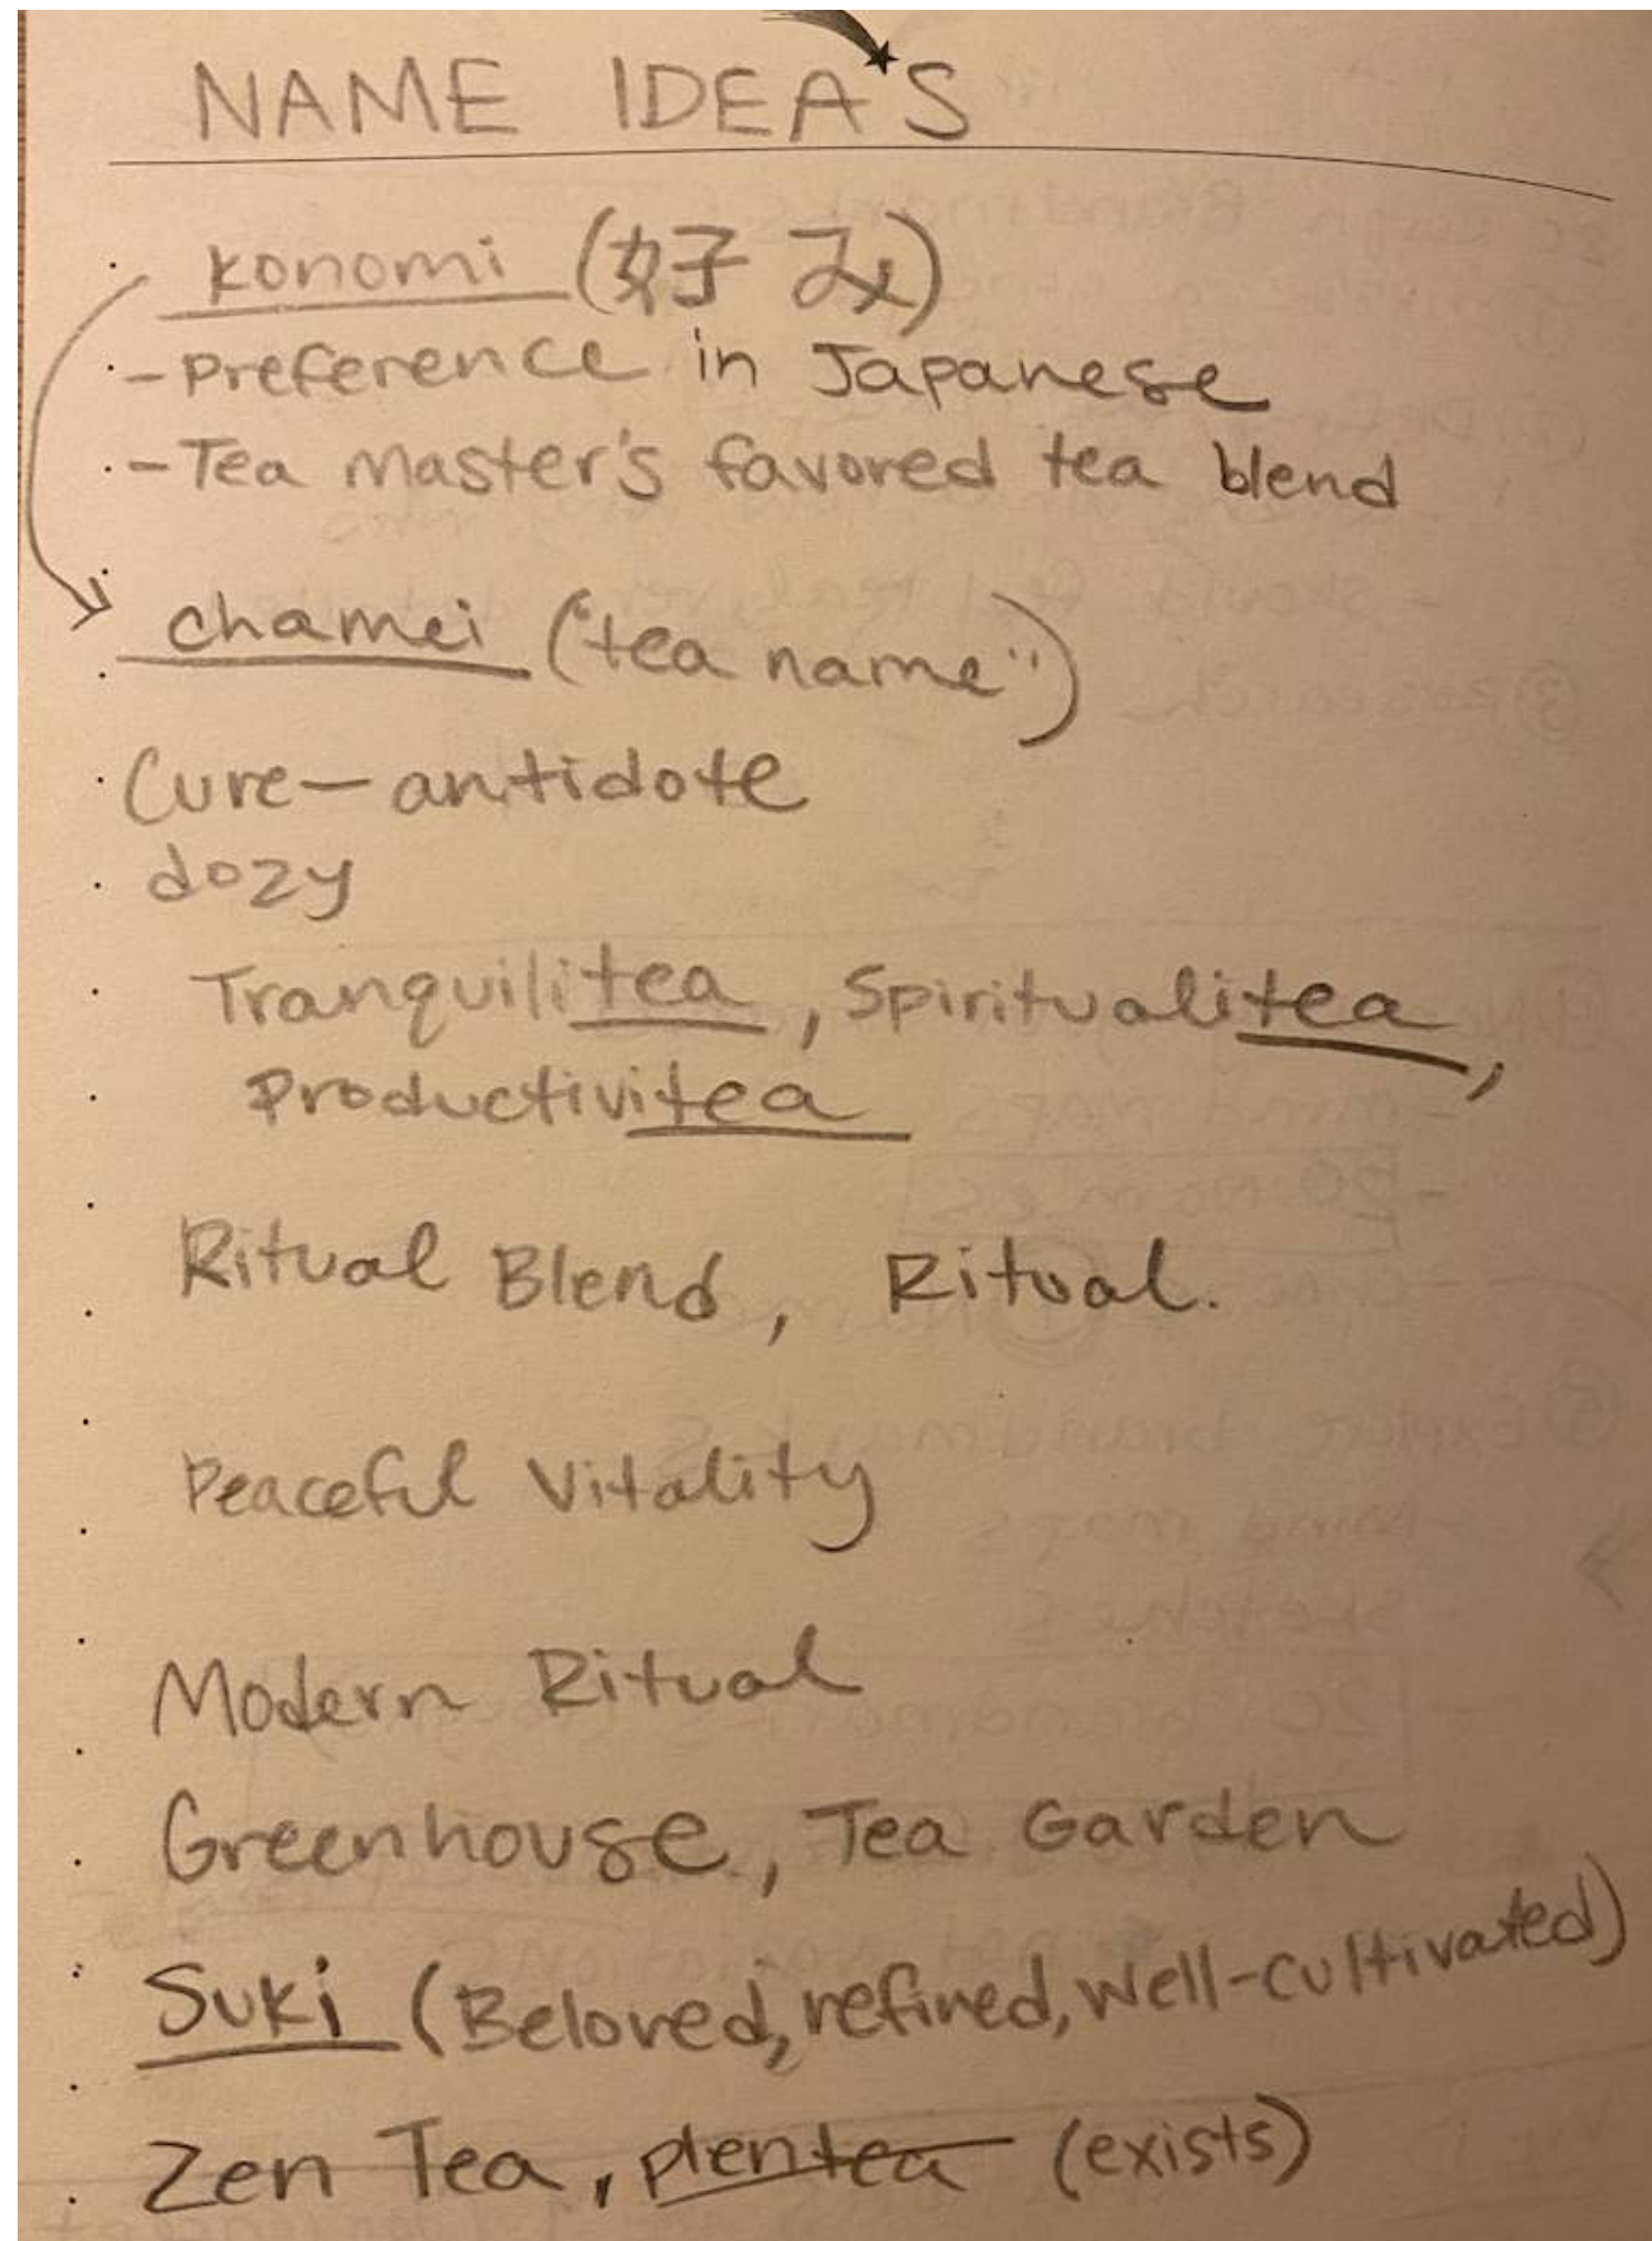 NAME IDEA'S
konomi (好み)
- Preference in Japanese
- Tea Master's favored tea blend
chamei ("tea name")
Cure - antidote
dozy
Tranquilitea, Spiritualitea,
Productivitea
Ritual Blend, Ritual.
Peaceful Vitality
Modern Ritual
Greenhouse, Tea Garden
Suki (Beloved, refined, well-cultivated)
Zen Tea, plentea (exists)